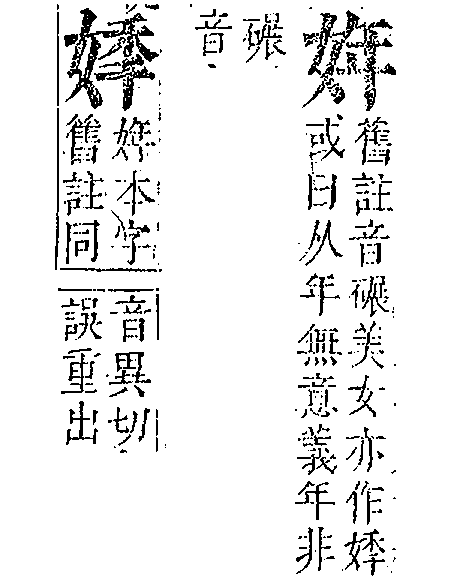 姩
舊註音碾美女亦作
或曰从年無意義年非
碾
音
姩本字
舊註同
音異切
誤重出